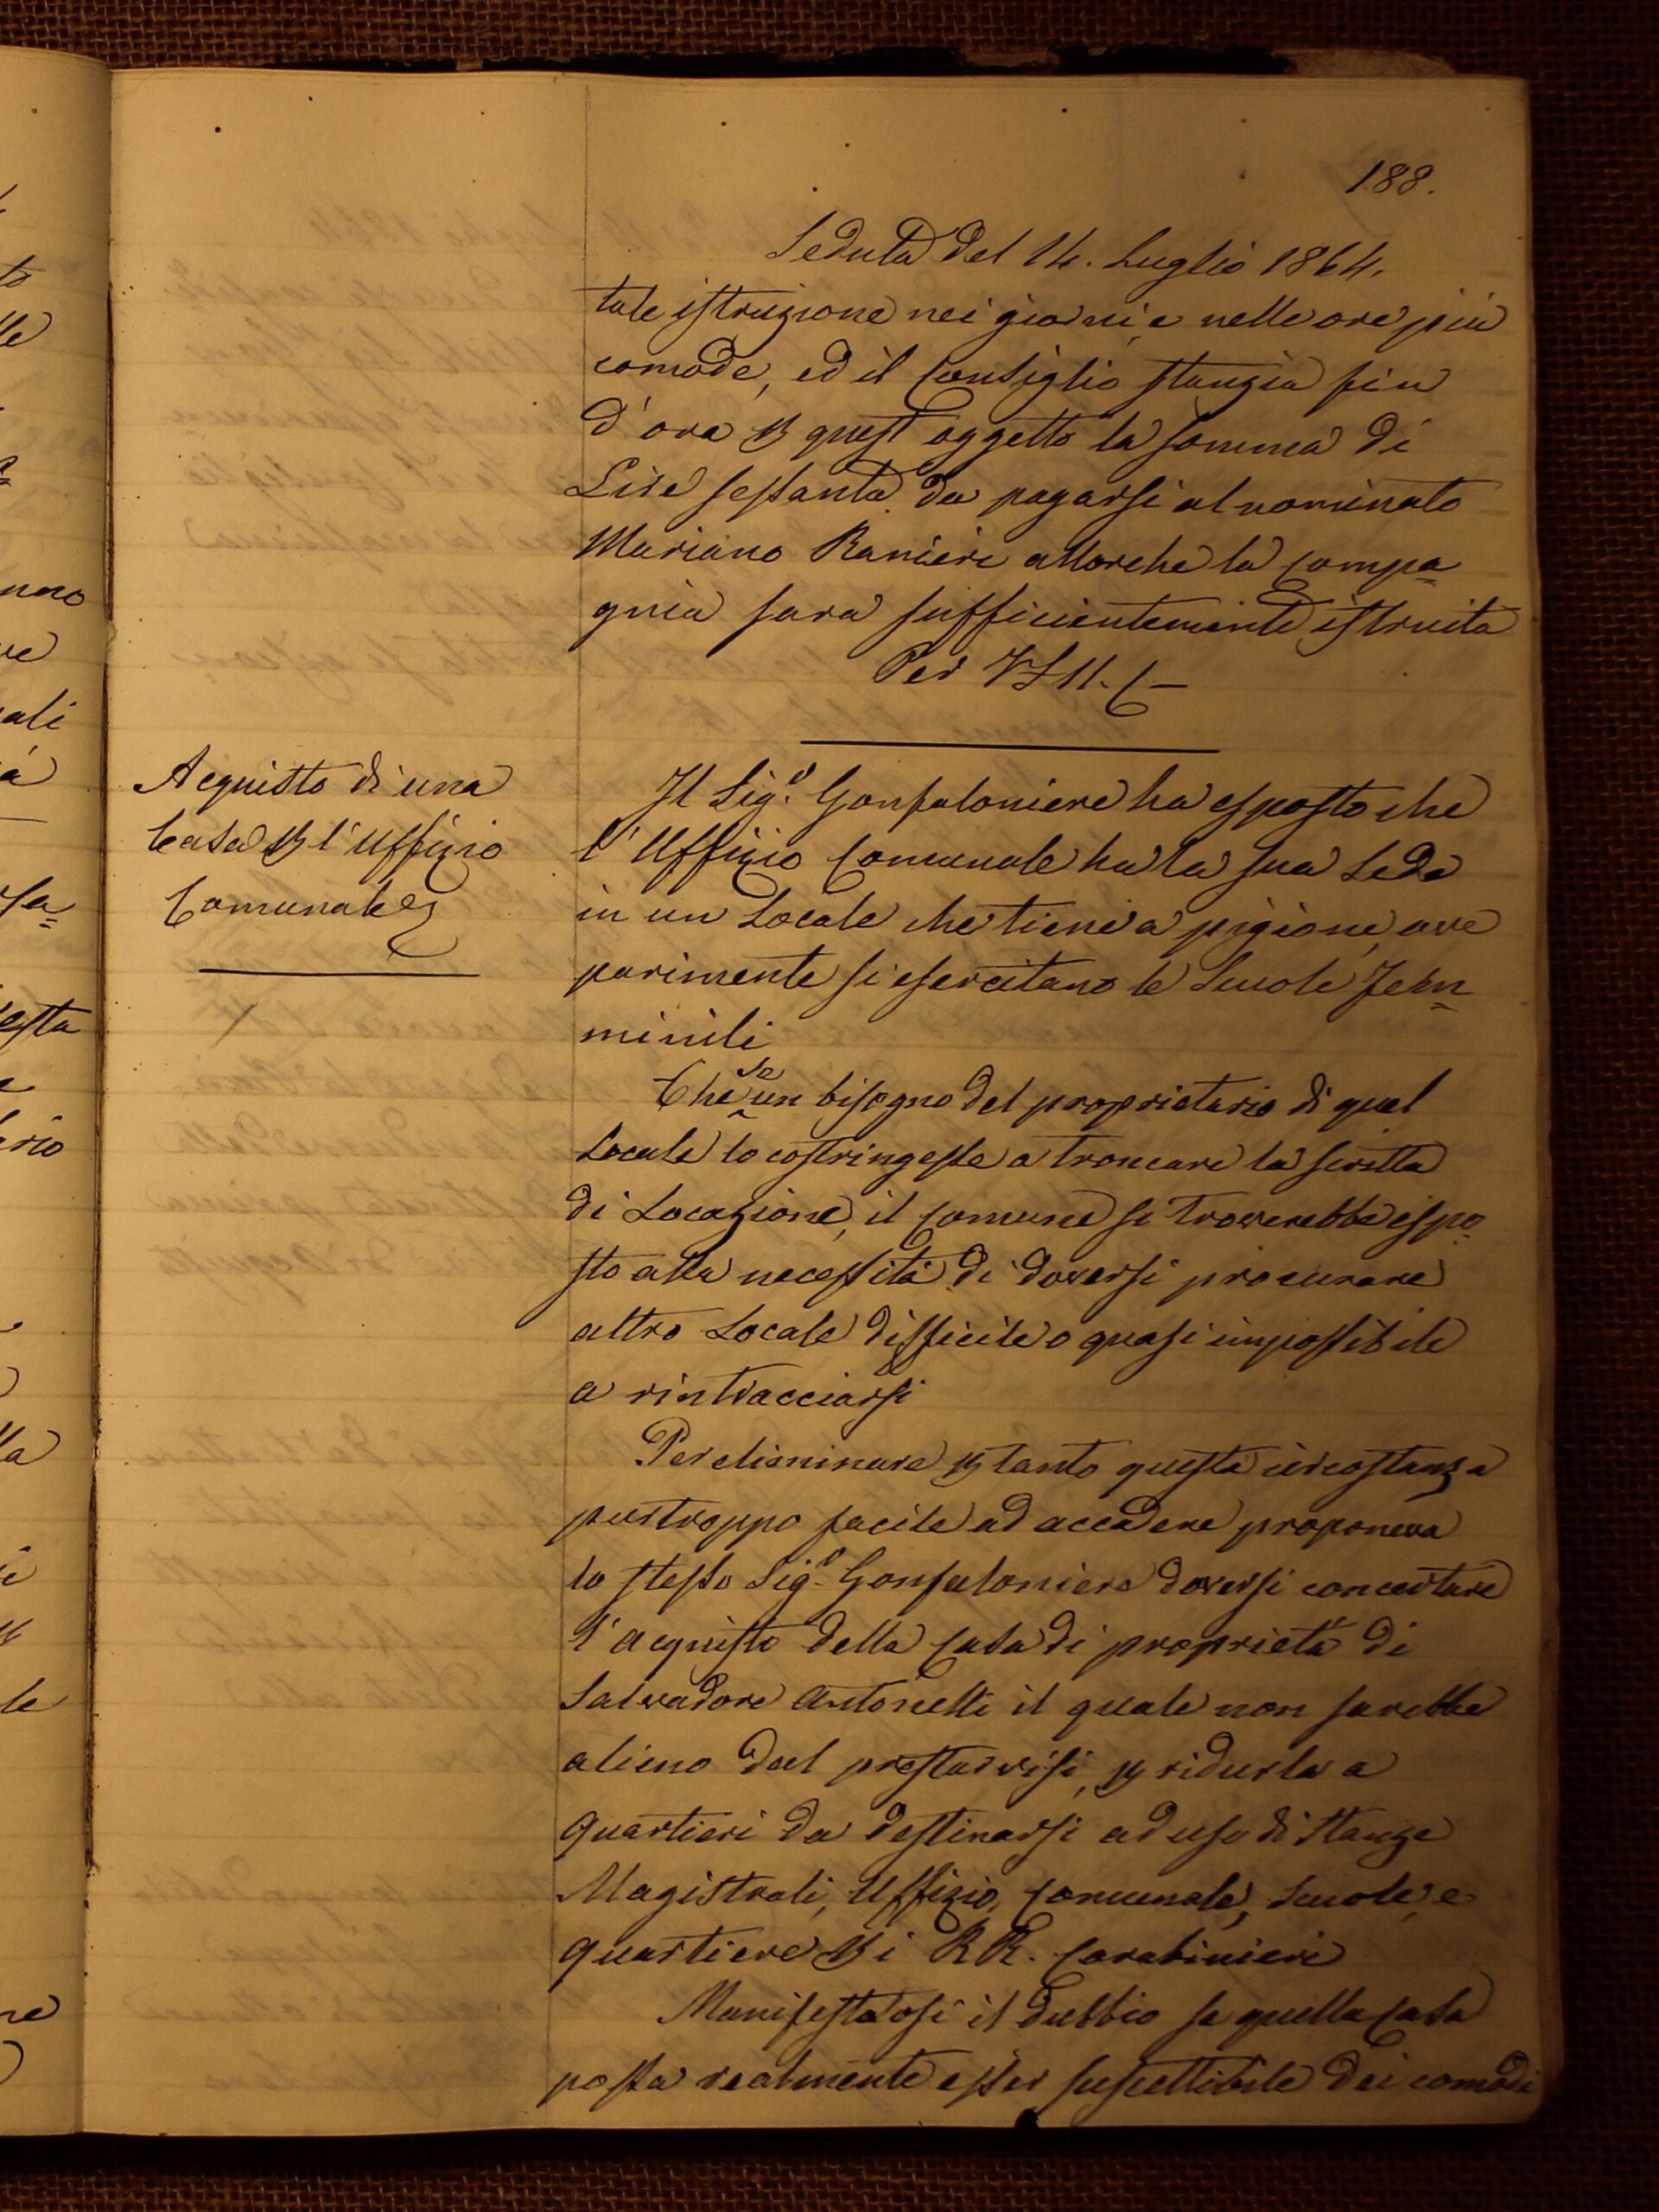 188.
Seduta del 14. Luglio 1864.
tale istruzione nei giorni, e nelle ore più
comode, ed il Consiglio stanzia fin
d'ora p quest'oggetto la somma di
Lire sessanta da pagarsi al nominato
Mariano Ranieri allorche la Compa=
gnia sara sufficientemente istruita
Per
Acquisto di una
Casa p l'Uffizio
Comunale
Il Sig.r Gonfaloniere ha esposto che
l'Uffizio Comunale ha la sua Sede
in un Locale che tiene a pigione, ove
parimente si esercitano le Scuole Fem=
minili
Che se un bisogno del proprietario di quel
Locale lo costringesse a troncare la scritta
di Locazione, il Comune si troverebbe espo=
sto alla necessità di doversi procurare
altro Locale difficile o quasi impossibile
a rintracciarsi
Per eliminare p tanto questa circostanza
purtroppo facile ad accadere proponeva
lo stesso Sig.r Gonfaloniere doversi concertare
l'acquisto della Casa di proprietà di
Salvadore Antonelli il quale non sarebbe
alieno dal prestarvisi, p ridurla a
quartieri da destinarsi ad uso di Stanze
Magistrali, Uffizio, Comunale, Scuole, e
quartiere p i RR. Carabinieri
Manifestatosi il dubbio se quella Casa
possa realmente esser suscettibile dei comodi